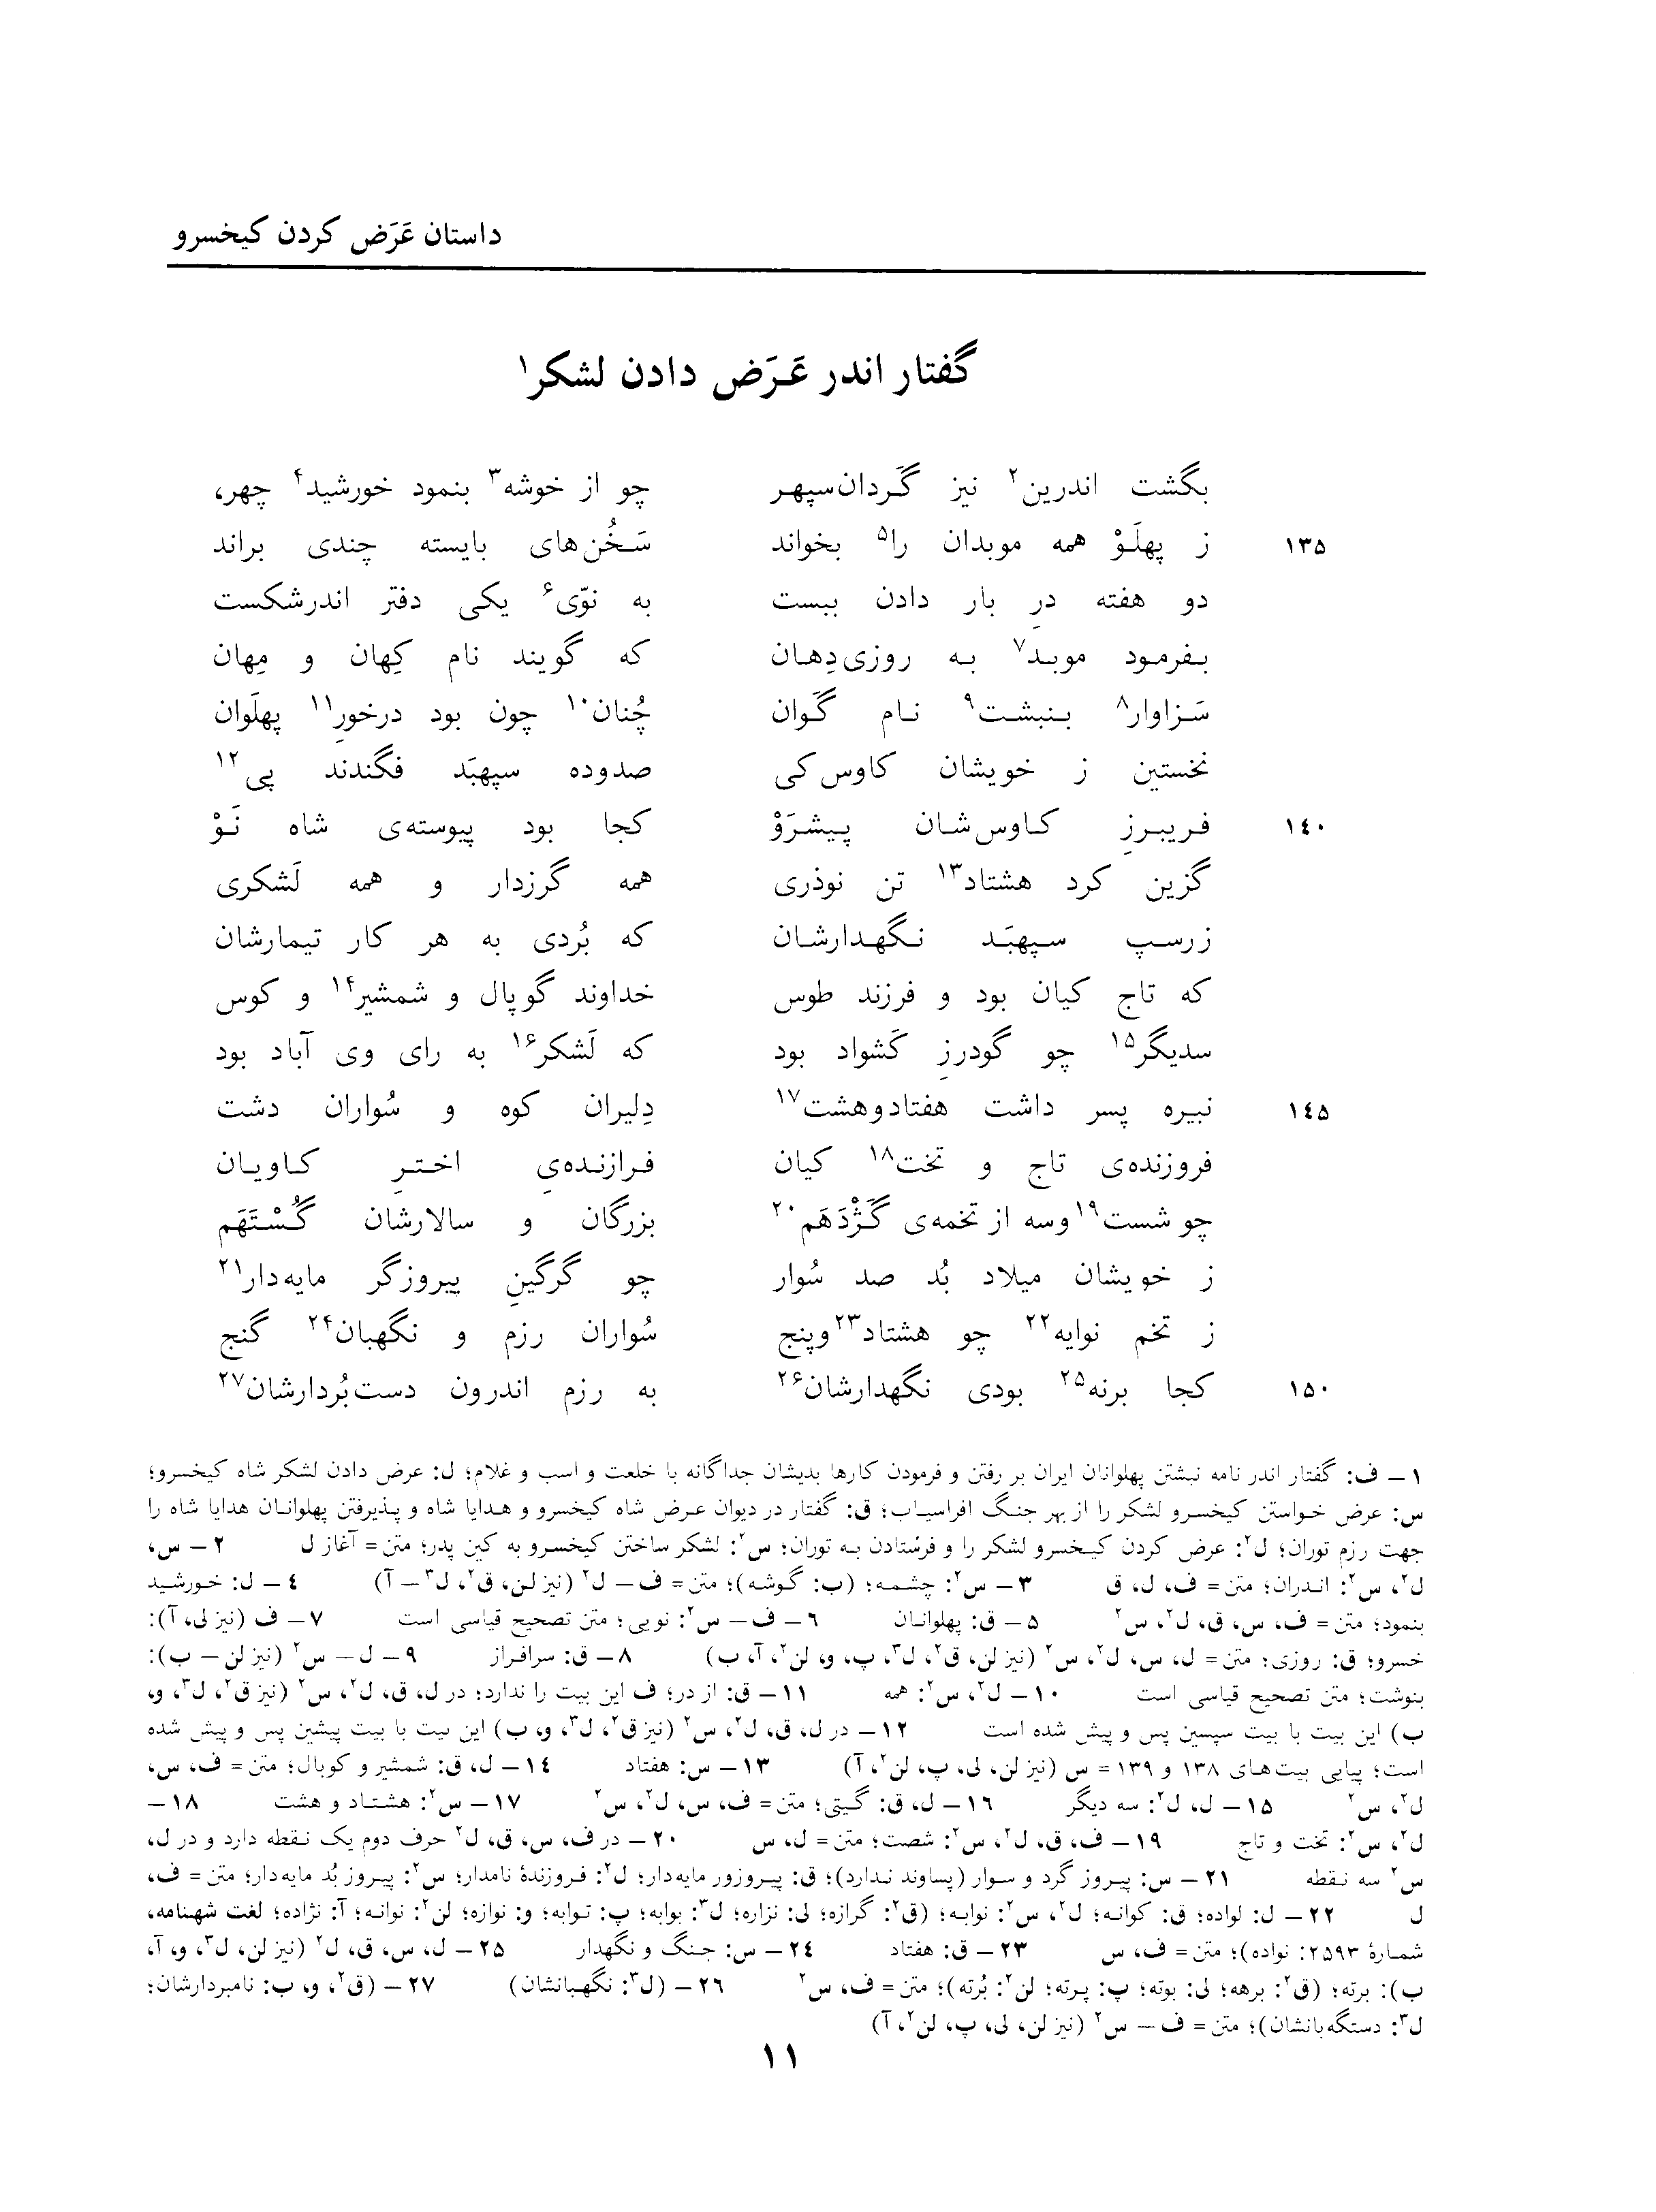 داستان عَرَض کردن کیخسرو
گفتار اندر عَرَض دادن لشکر۱
بگشت اندرین۲ نیز گَردان‌سپهر چو از خوشه۳ بنمود خورشید۴ چهر،
۱۳۵ ز پهلَوْ همه موبدان را۵ بخواند سَخُن‌های بایسته چندی براند
دو هفته درِ بار دادن ببست به نوّی۶ یکی دفتر اندرشکست
بفرمود موبد۷ به روزی‌دِهان که گویند نام کِهان و مِهان
سَزاوار۸ بنبشت۹ نام گَوان چُنان۱۰ چون بود درخورِ۱۱ پهلَوان
نخستین ز خویشان کاوس کی صدوده سپهبَد فگندند پی۱۲
۱٤۰ فریبرزِ کاوس‌شان پیشرَوْ کجا بود پیوسته‌ی شاه نَوْ
گزین کرد هشتاد۱۳ تن نوذری همه گرزدار و همه لَشکری
زرسپ سپهبَد نگهدارشان که بُردی به هر کار تیمارشان
که تاج کیان بود و فرزند طوس خداوند گوپال و شمشیر۱۴ و کوس
سدیگر۱۵ چو گودرزِ کَشواد بود که لَشکر۱۶ به رای وی آباد بود
۱٤۵ نبیره پسر داشت هفتادوهشت۱۷ دِلیران کوه و سُواران دشت
فروزنده‌ی تاج و تخت۱۸ کیان فرازنده‌یِ اخترِ کاویان
چو شست۱۹وسه از تخمه‌ی گَژْدَهَم۲۰ بزرگان و سالارشان گُسْتَهَم
ز خویشان میلاد بُد صد سُوار چو گرگینِ پیروزگر مایه‌دار۲۱
ز تخم نوایه۲۲ چو هشتاد۲۳وپنج سُواران رزم و نگهبان۲۴ گنج
۱۵۰ کجا برنه۲۵ بودی نگهدارشان۲۶ به رزم اندرون دست‌بُردارشان۲۷
۱ – ف: گفتار اندر نامه نبشتن پهلوانان ایران بر رفتن و فرمودن کارها بدیشان جداگانه با خلعت و اسب و غلام؛ ل: عرض دادن لشکر شاه کیخسرو؛
س: عرض خواستن کیخسرو لشکر را از بهر جنگ افراسیاب؛ ق: گفتار در دیوان عرض شاه کیخسرو و هدایا شاه و پذیرفتن پهلوانان هدایا شاه را
جهت رزم توران؛ ل۲: عرض کردن کیخسرو لشکر را و فرستادن به توران؛ س۲: لشکر ساختن کیخسرو به کین پدر؛ متن = آغاز ل ۲ – س،
ل۲، س۲: اندران؛ متن = ف، ل، ق ۳ – س۲: چشمه؛ (ب: گوشه)؛ متن = ف – ل۲ (نیز لن، ق۲، ل۳ – آ) ٤ – ل: خورشید
بنمود؛ متن = ف، س، ق، ل۲، س۲ ۵ – ق: پهلوانان ٦ – ف – س۲: نویی؛ متن تصحیح قیاسی است ۷ – ف (نیز لی، آ):
خسرو؛ ق: روزی؛ متن = ل، س، ل۲، س۲ (نیز لن، ق۲، ل۳، پ، و، لن۲، آ، ب) ۸ – ق: سرافراز ۹ – ل – س۲ (نیز لن – ب):
بنوشت؛ متن تصحیح قیاسی است ۱۰ – ل۲، س۲: همه ۱۱ – ق: از در؛ ف این بیت را ندارد؛ در ل، ق، ل۲، س۲ (نیز ق۲، ل۳، و،
ب) این بیت با بیت سپسین پس و پیش شده است ۱۲ – در ل، ق، ل۲، س۲ (نیز ق۲، ل۳، و، ب) این بیت با بیت پیشین پس و پیش شده
است؛ پیاپی بیت‌های ۱۳۸ و ۱۳۹ = س (نیز لن، لی، پ، لن۲، آ) ۱۳ – س: هفتاد ۱٤ – ل، ق: شمشیر و کوبال؛ متن = ف، س،
ل۲، س۲ ۱۵ – ل، ل۲: سه دیگر ۱٦ – ل، ق: گیتی؛ متن = ف، س، ل۲، س۲ ۱۷ – س۲: هشتاد و هشت ۱۸ –
ل۲، س۲: تخت و تاج ۱۹ – ف، ق، ل۲، س۲: شصت؛ متن = ل، س ۲۰ – در ف، س، ق، ل۲ حرف دوم یک نقطه دارد و در ل،
س۲ سه نقطه ۲۱ – س: پیروز گرد و سوار (پساوند ندارد)؛ ق: پیروزور مایه‌دار؛ ل۲: فروزندهٔ نامدار؛ س۲: پیروز بُد مایه‌دار؛ متن = ف،
ل ۲۲ – ل: لواده؛ ق: کوانه؛ ل۲، س۲: نوابه؛ (ق۲: گرازه؛ لی: نزاره؛ ل۳: بوابه؛ پ: توابه؛ و: نوازه؛ لن۲: نوانه؛ آ: نژاده؛ لغت شهنامه،
شمارهٔ ۲۵۹۳: نواده)؛ متن = ف، س ۲۳ – ق: هفتاد ۲٤ – س: جنگ و نگهدار ۲۵ – ل، س، ق، ل۲ (نیز لن، ل۳، و، آ،
ب): برته؛ (ق۲: برهه؛ لی: بوته؛ پ: پرته؛ لن۲: بُرته)؛ متن = ف، س۲ ۲٦ – (ل۳: نگهبانشان) ۲۷ – (ق۲، و، ب: نامبردارشان؛
ل۳: دستگه‌بانشان)؛ متن = ف – س۲ (نیز لن، لی، پ، لن۲، آ)
۱۱